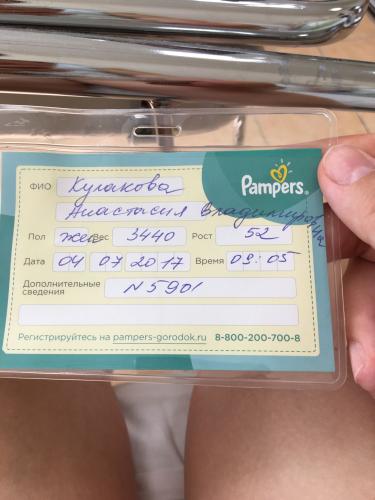 Pampers®
ФИО Кулакова
Анастасия Владимировна
Пол жен Вес 3440 Рост 52
Дата 04 07 2017 Время 09:05
Дополнительные сведения N 5901
Регистрируйтесь на pampers-gorodok.ru 8-800-200-700-8